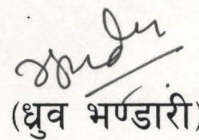 (ध्रुव भण्डारी)